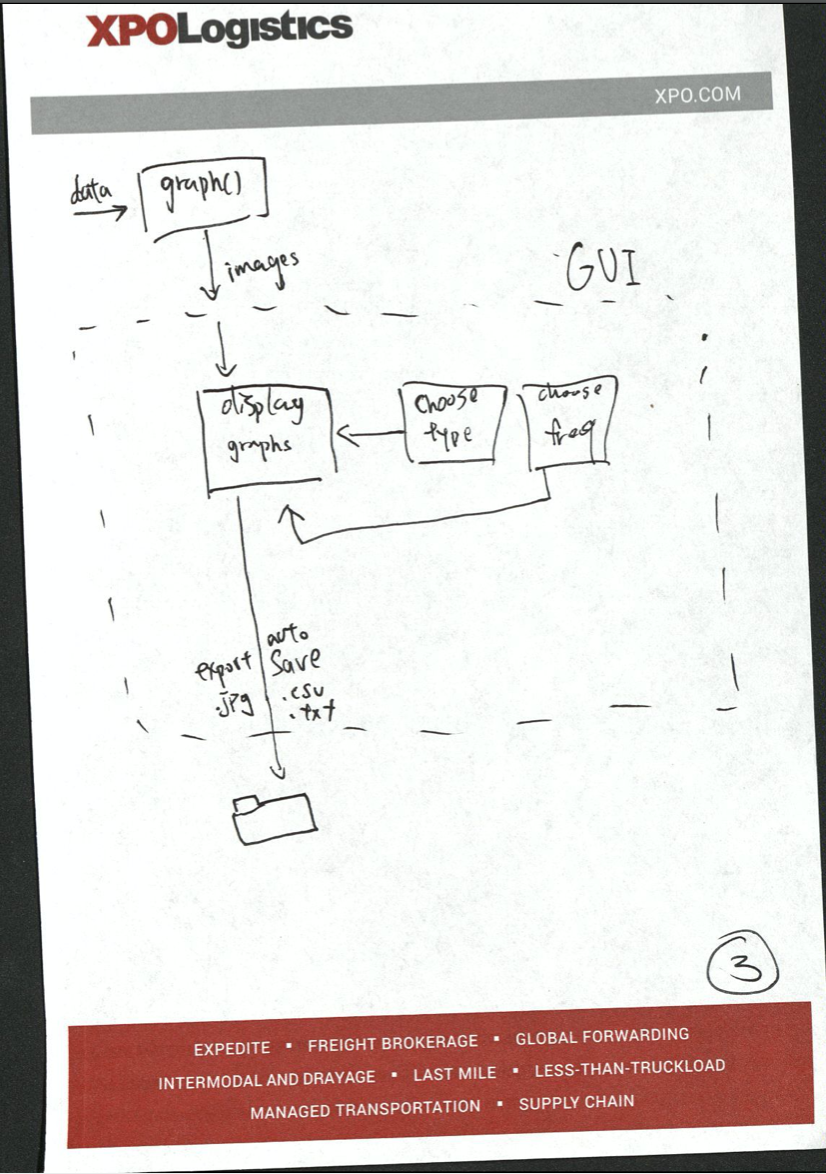 XPOLogistics
XPO.COM
data
graph()
images
GUI
display
graphs
choose
type
choose
freq
export
.jpg
auto
save
.csv
.txt
3
EXPEDITE ▪ FREIGHT BROKERAGE ▪ GLOBAL FORWARDING
INTERMODAL AND DRAYAGE ▪ LAST MILE ▪ LESS-THAN-TRUCKLOAD
MANAGED TRANSPORTATION ▪ SUPPLY CHAIN